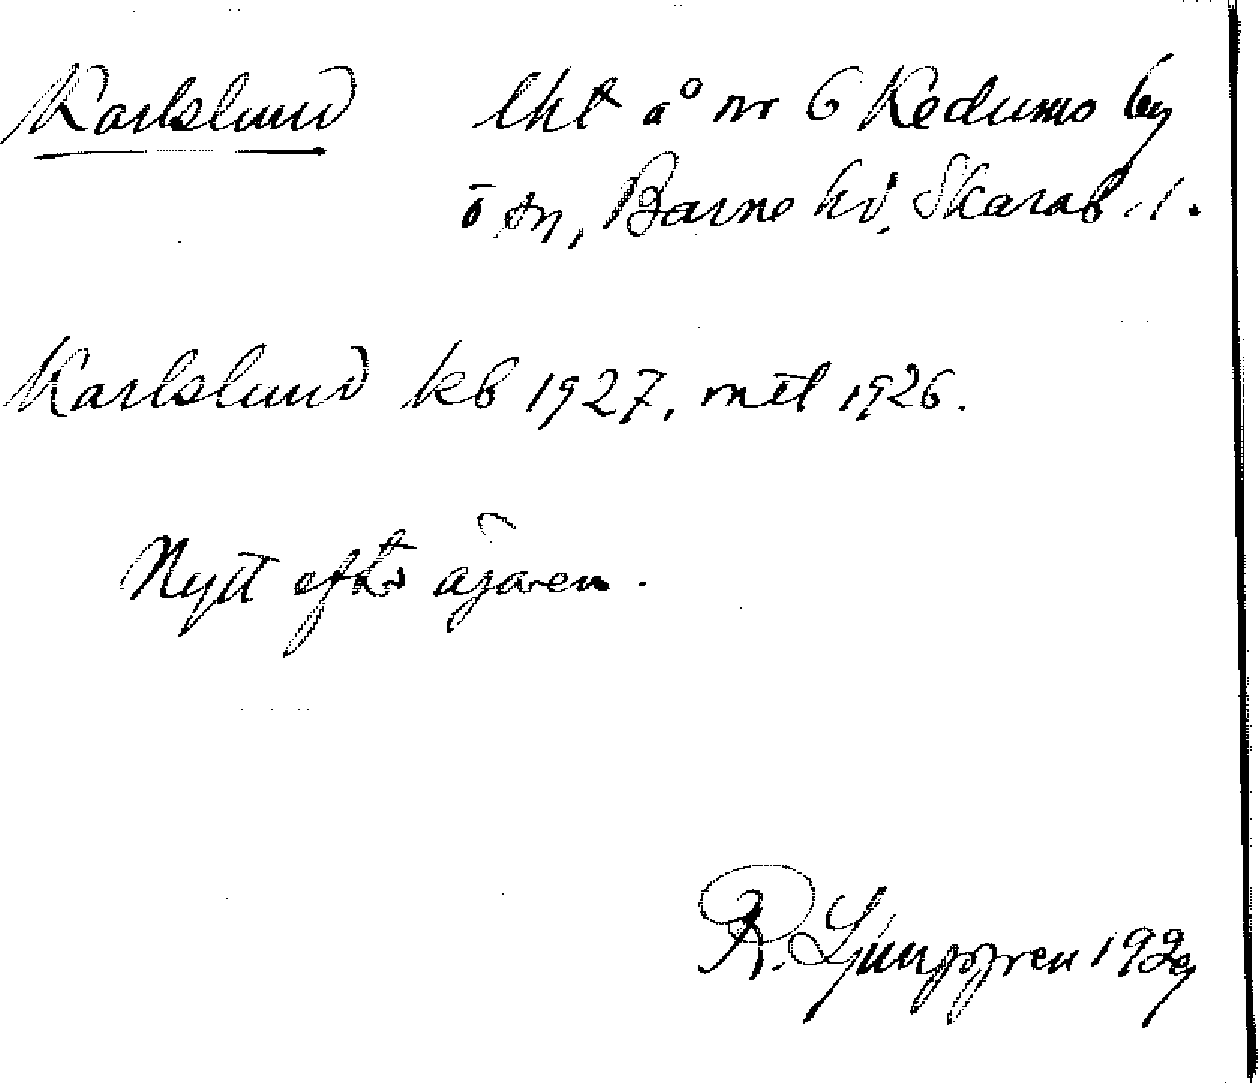 Karlslund lht å nr 6 Kedums by
ö sn, Barne hd, Skarab. l.
Karlslund kb 1927, mtl 1926.
Nytt efter ägaren.
R. Ljunggren 1929